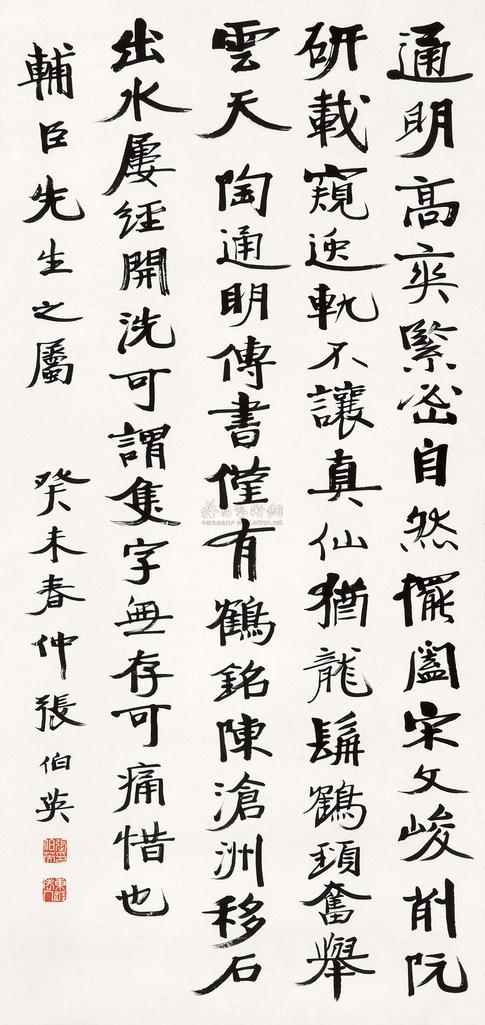 通明高爽緊密自然擺闔宋文峻削阮
研載窺逸軌不讓真仙猶龍髯鶴頸奮舉
雲天 陶通明傳書僅有鶴銘陳滄洲移石
出水屢經開洗可謂隻字無存可痛惜也
輔臣先生之屬 癸未春仲張伯英